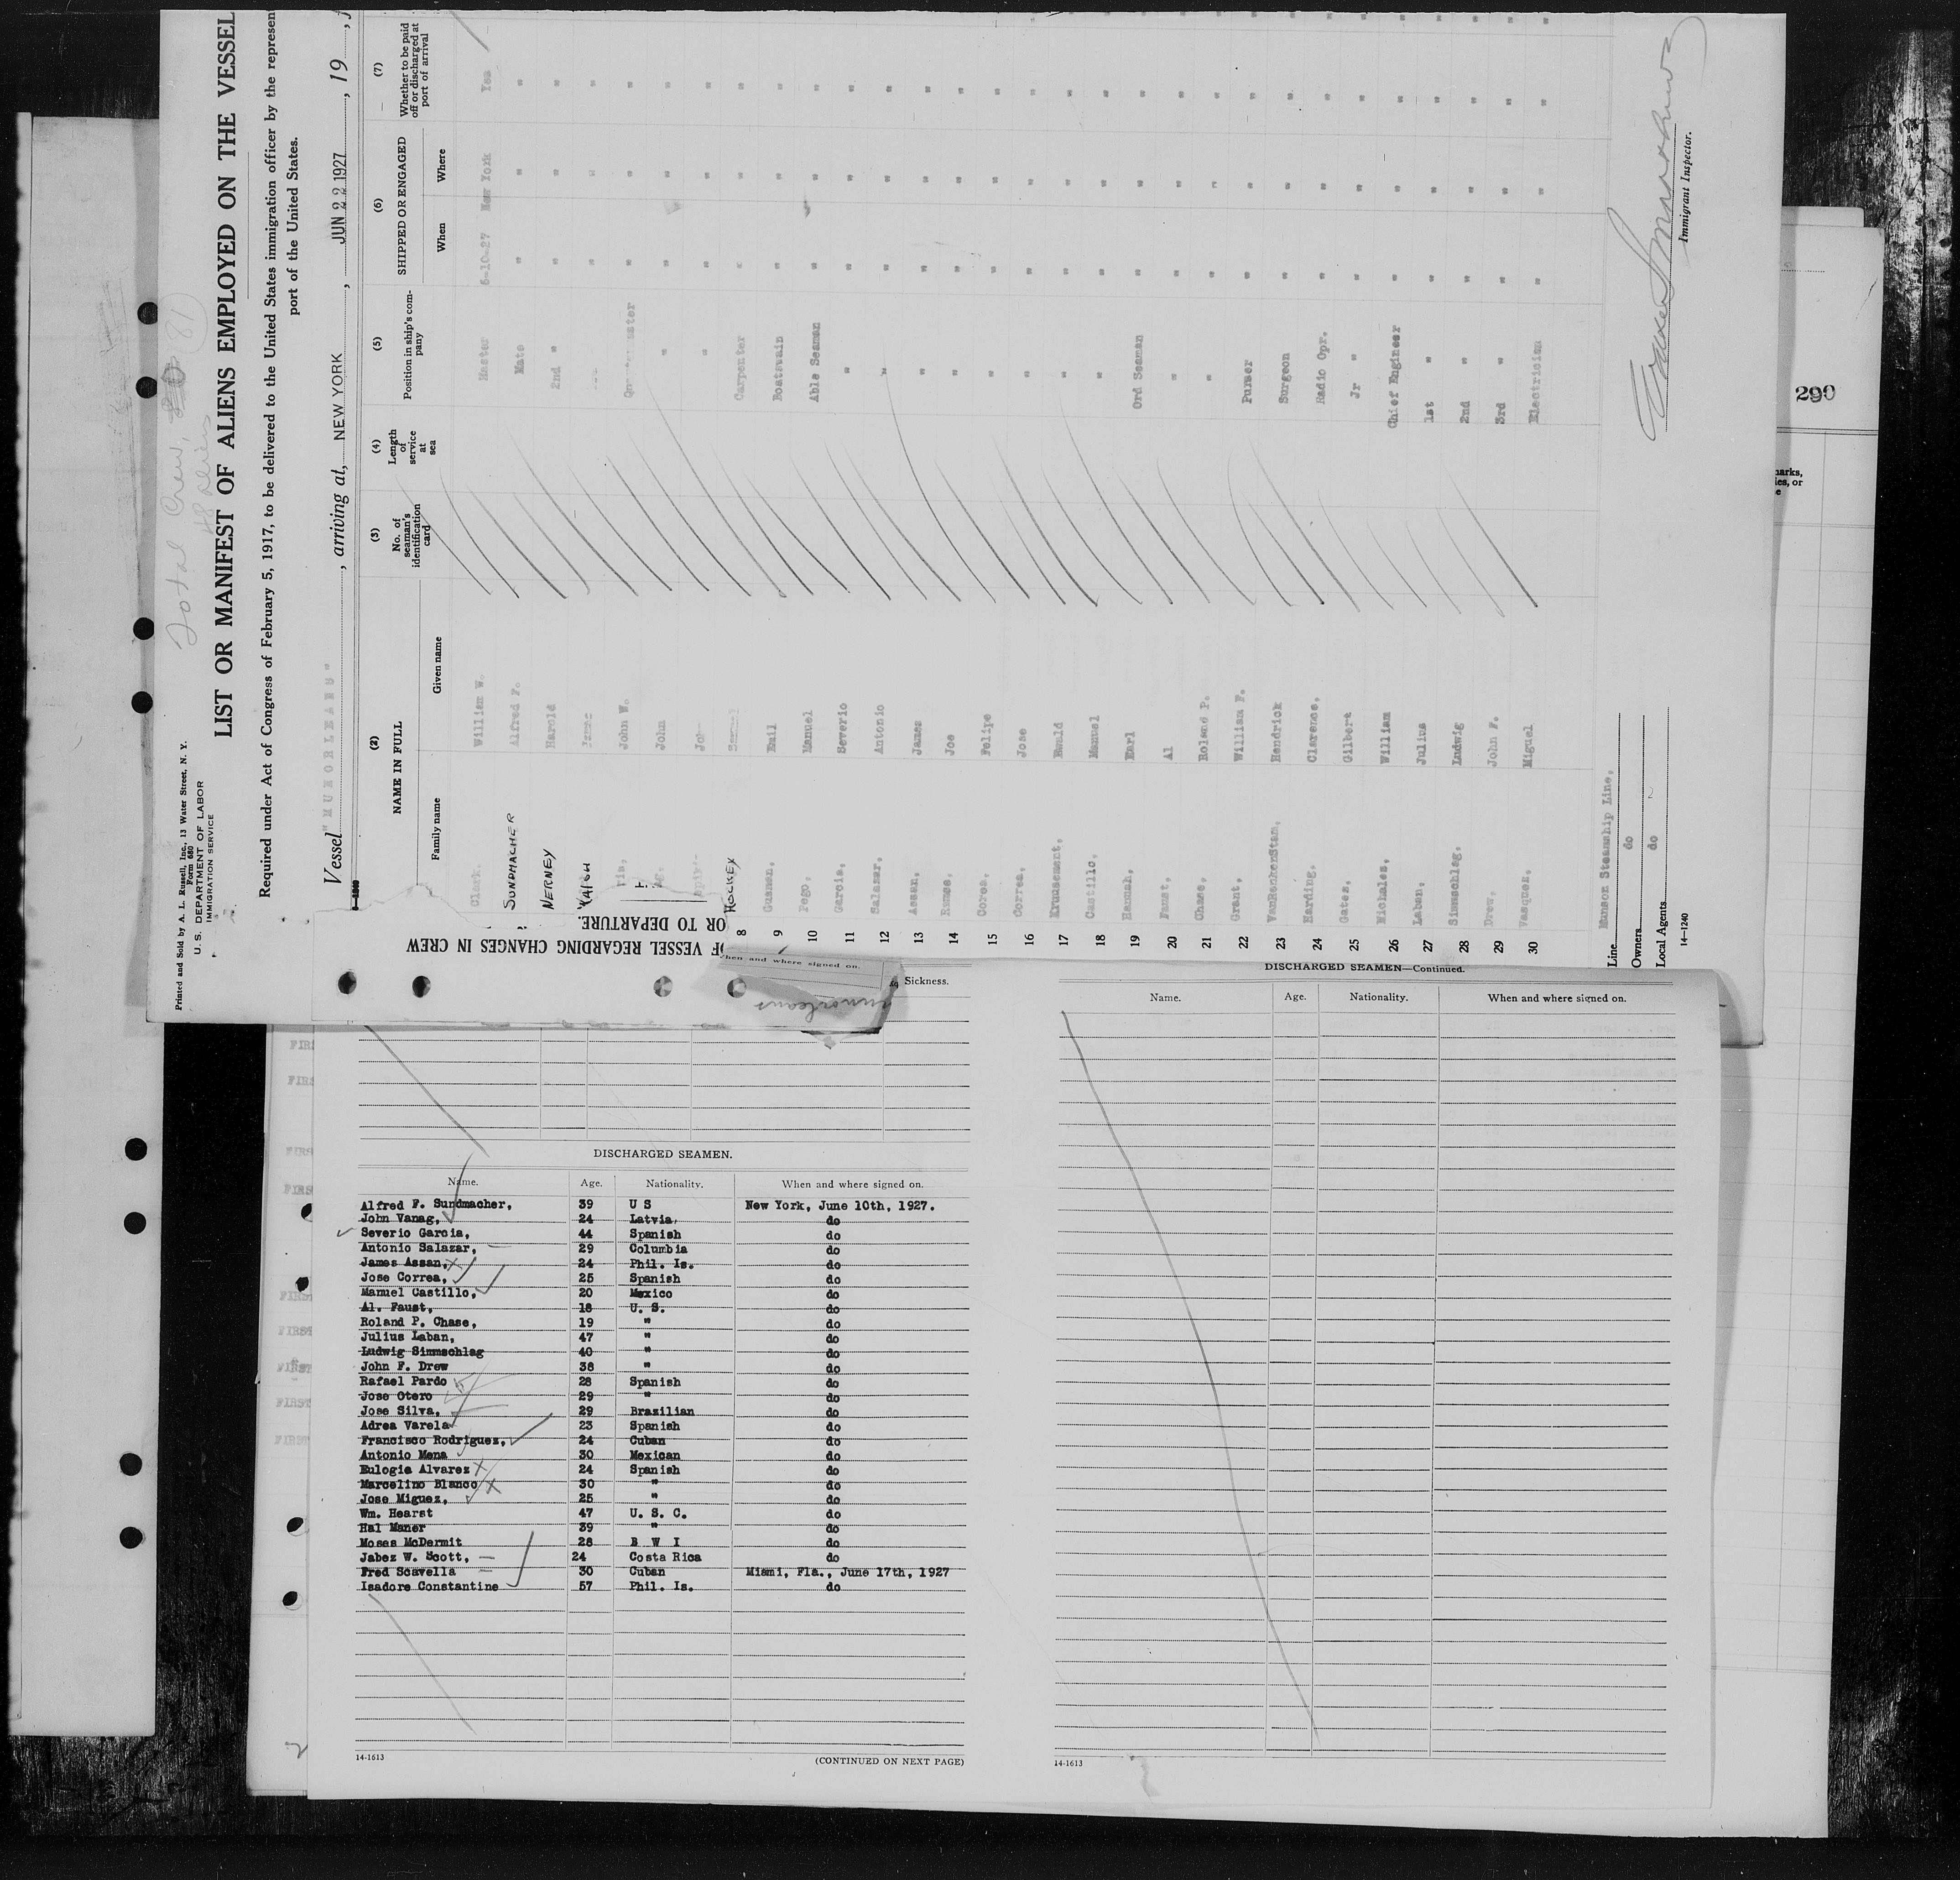 Printed and Sold by A. L. Russell, Inc., 13 Water Street, N. Y.
Form 680
U. S. DEPARTMENT OF LABOR
IMMIGRATION SERVICE
Total Crew, 81
48 aliens
LIST OR MANIFEST OF ALIENS EMPLOYED ON THE VESSEL
Required under Act of Congress of February 5, 1917, to be delivered to the United States immigration officer by the represen
port of the United States.
Vessel "MUNORLEANS", arriving at, NEW YORK, JUN 22 1927, 19
(2) (3) (4) (5) (6) (7)
NAME IN FULL No. of seaman's identification card Length of service at sea Position in ship's company SHIPPED OR ENGAGED Whether to be paid off or discharged at port of arrival
Family name Given name When Where
Clark. William W. Master 6-10-27 New York Yes
SUNDMACHER Alfred F. Mate " " "
NERNEY Harold 2nd " " " "
James " " "
John W. Quartermaster " " "
John " " " "
" " " "
HOCKEY Samuel Carpenter " " "
8
9 Gusman, Emil Boatswain " " "
10 Pego, Manuel Able Seaman " " "
11 Garcia, Severio " " " "
12 Salazar, Antonio " " " "
13 Assan, James " " " "
14 Joe " " " "
15 Correa, Felipe " " " "
16 Correa, Jose " " " "
17 Ewald " " " "
18 Castillo, Manuel " " " "
19 Hannah, Earl Ord Seaman " " "
20 Faust, Al " " " "
21 Chase, Roland P. " " " "
22 Grant, William F. Purser " " "
23 Hendrick Surgeon " " "
24 Harding, Clarence, Radio Opr. " " "
25 Gates, Gilbert Jr " " " "
26 Michales, William Chief Engineer " " "
27 Laban, Julius 1st " " " "
28 Simmschlag, Ludwig 2nd " " " "
29 Drew, John F. 3rd " " " "
30 Vasques, Miguel Electrician " " "
Line Munson Steamship Line,
Owners do
Local Agents do
14-1240
Immigrant Inspector.
290
arks,
ies, or
e
OF VESSEL REGARDING CHANGES IN CREW
OR TO DEPARTURE.
When and where signed on.
Sickness.
DISCHARGED SEAMEN.
Name. Age. Nationality. When and where signed on.
Alfred F. Sundmacher, 39 U S New York, June 10th, 1927.
John Vanag, 24 Latvia, do
Severio Garcia, 44 Spanish do
Antonio Salazar, 29 Columbia do
James Assan, 24 Phil. Is. do
Jose Correa, 25 Spanish do
Manuel Castillo, 20 Mexico do
Al. Faust, 18 U. S. do
Roland P. Chase, 19 " do
Julius Laban, 47 " do
Ludwig Simmschlag 40 " do
John F. Drew 38 " do
Rafael Pardo 28 Spanish do
Jose Otero 29 " do
Jose Silva, 29 Brazilian do
Adrea Varela 23 Spanish do
Francisco Rodriguez, 24 Cuban do
Antonio Mena 30 Mexican do
Eulogia Alvarez 24 Spanish do
Marcelino Blanco 30 " do
Jose Miguez, 25 " do
Wm. Hearst 47 U. S. C. do
Hal Maner 39 " do
Moses McDermit 28 B W I do
Jabez W. Scott, 24 Costa Rica do
Fred Scavella 30 Cuban Miami, Fla., June 17th, 1927
Isadore Constantine 57 Phil. Is. do
14-1613
(CONTINUED ON NEXT PAGE)
DISCHARGED SEAMEN—Continued.
Name. Age. Nationality. When and where signed on.
14-1613
FIRS
FIRS
FIRS
FIRS
FIRS
FIRST
FIRST
FIRST
FIRST